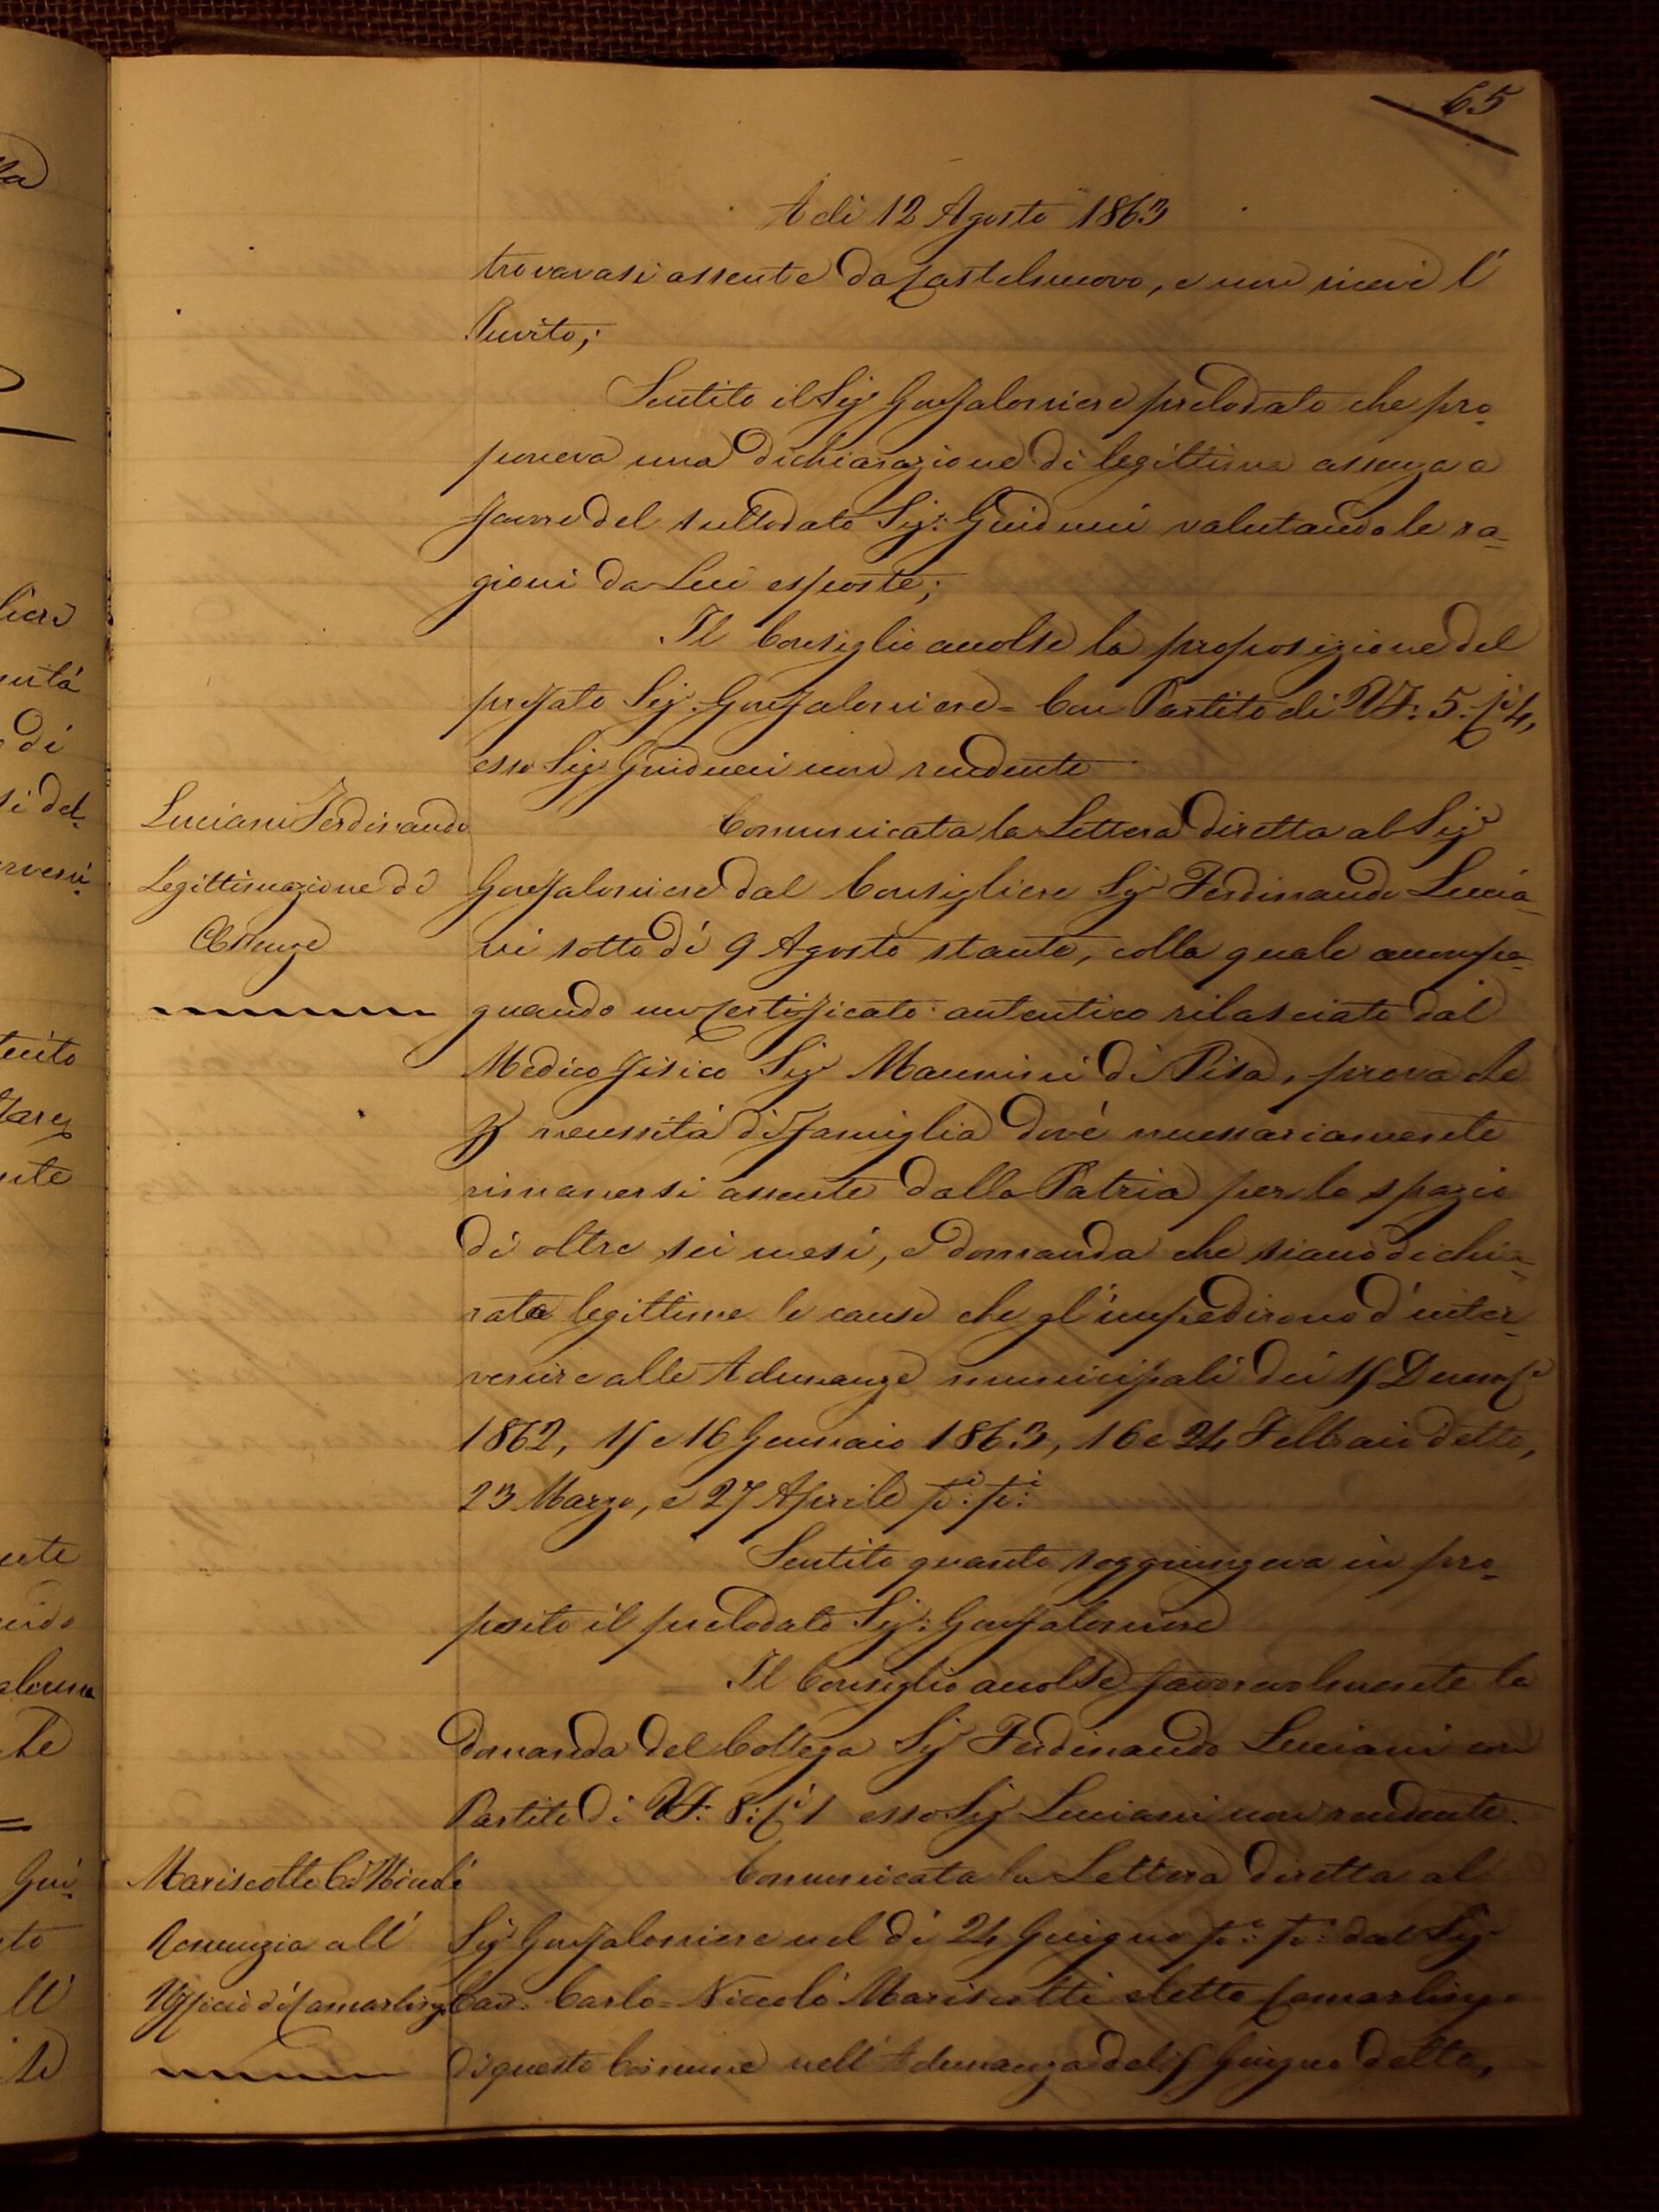 65
A dì 12 Agosto 1863
trovavasi assente da Castelnuovo, e non ricevè l'
Invito;
Sentito il Sigr Gonfaloniere prelodato che pro-
poneva una dichiarazione di legittima assenza a
favore del sullodato Sigr: Guiducci valutando le ra-
gioni da Lui esposte;
Il Consiglio accolse la proposizione del
prefato Sigr. Gonfaloniere = Con Partito di VF: 5. Ci 4,
esso Sigr Guiducci non rendente
Luciani Ferdinando
Legittimazione di
Assenze
Comunicata la Lettera diretta al Sigr
Gonfaloniere dal Consigliere Sigr Ferdinando Lucia-
ni sotto dì 9 Agosto stante, colla quale accompa-
gnando un Certificato autentico rilasciato dal
Medico fisico Sigr Mannini di Pisa, prova che
p necessità di famiglia dovè necessariamente
rimanersi assente dalla Patria per lo spazio
di oltre sei mesi, e domanda che siano dichia-
rate legittime le cause che gl'impedirono d'inter-
venire alle Adunanze municipali dei 15 Decembe
1862, 15 e 16 Gennaio 1863, 16 e 24 Febbraio detto,
23 Marzo, e 27 Aprile pi: pi:
Sentito quanto soggiungeva in pro-
posito il prelodato Sigr: Gonfaloniere
Il Consiglio accolse favorevolmente la
domanda del Collega Sigr Ferdinando Luciani con
Partito di VF: 8: Ci 1 esso Sigr Luciani non rendente.
Mariscotti Cav Niccolò
Renunzia all'
Ufficio di Camarlingo
Comunicata la Lettera diretta al
Sigr Gonfaloniere nel dì 24 Giugno po: po: dal Sigr
Cav. Carlo = Niccolò Mariscotti eletto Camarlingo
di questo Comune nell'Adunanza del 15 Giugno detto,